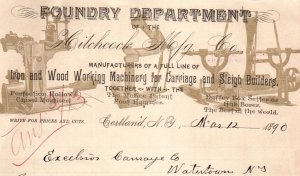 FOUNDRY DEPARTMENT
OF THE
Hitchcock Mfg. Co.
MANUFACTURERS OF A FULL LINE OF
Iron and Wood Working Machinery for Carriage and Sleigh Builders,
TOGETHER WITH THE
Perfection Hollow Chisel Mortiser,
The Mosher Patent Foot Hammer,
Hub Boxes.
The Best in the World.
WRITE FOR PRICES AND CUTS.
Cortland, N.Y. Mar 12 1890
Excelsior Carriage Co
Watertown N.Y